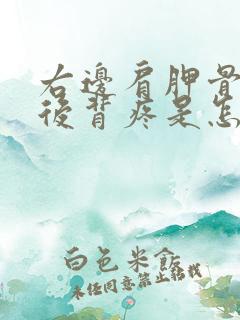 右邊肩胛骨
後背疼是怎
白色米飯
未經同意禁止轉載